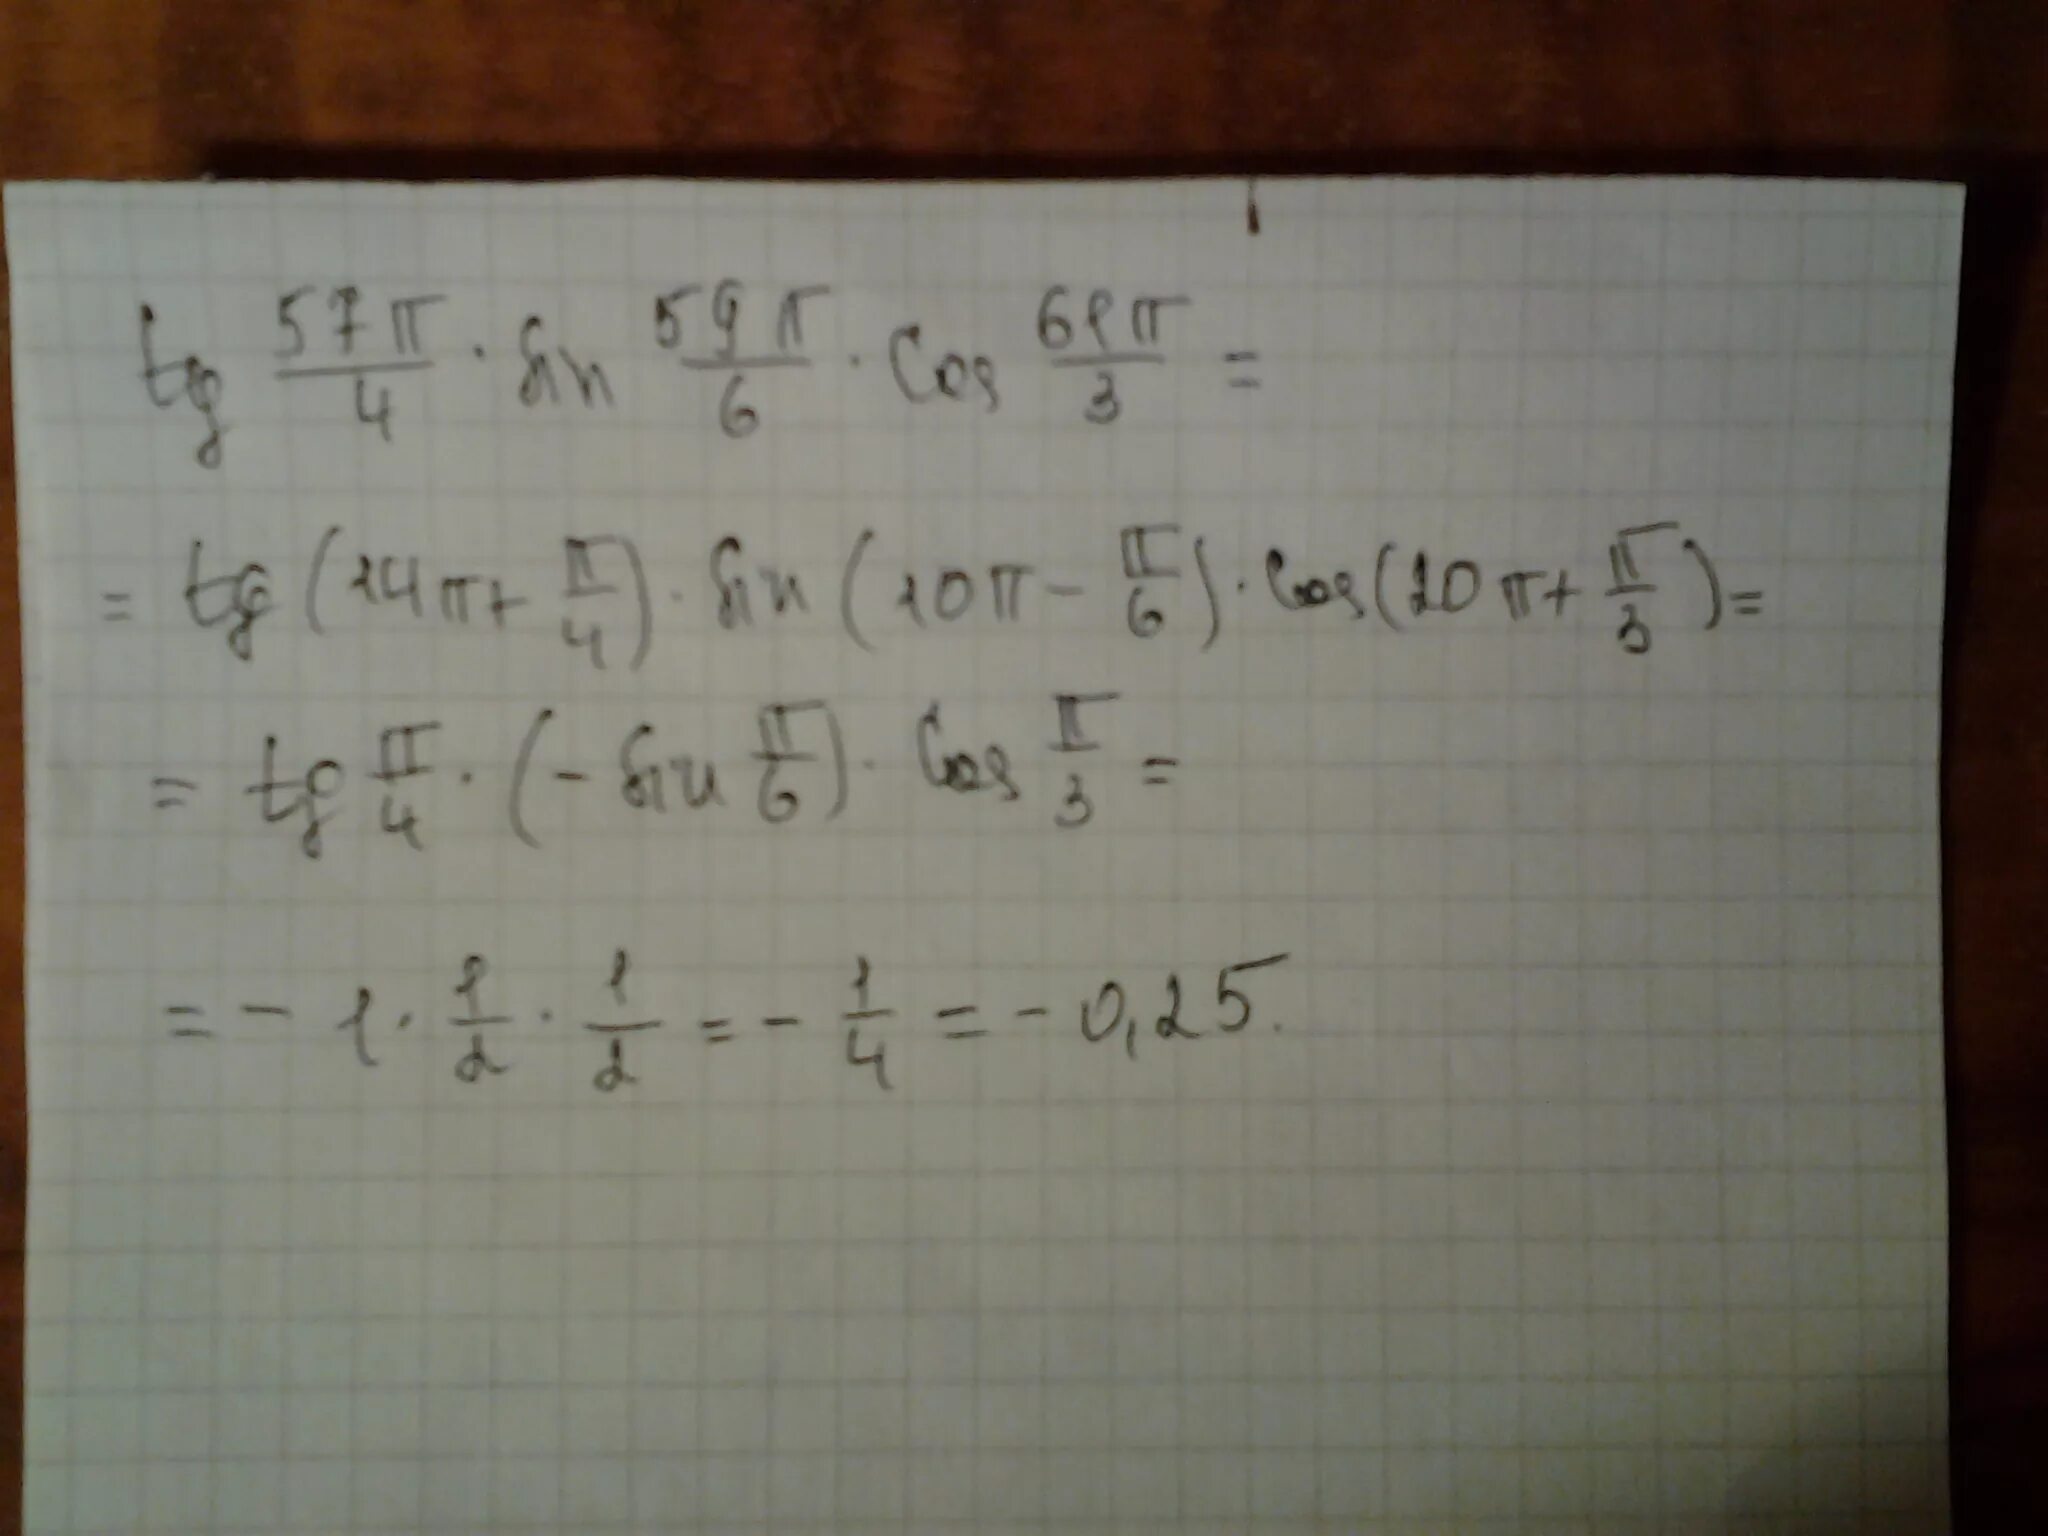 tg 57π/4 · sin 59π/6 · cos 61π/3 =
= tg (14π + π/4) · sin (10π - π/6) · cos (20π + π/3) =
= tg π/4 · (- sin π/6) · cos π/3 =
= - 1 · 1/2 · 1/2 = - 1/4 = - 0,25.